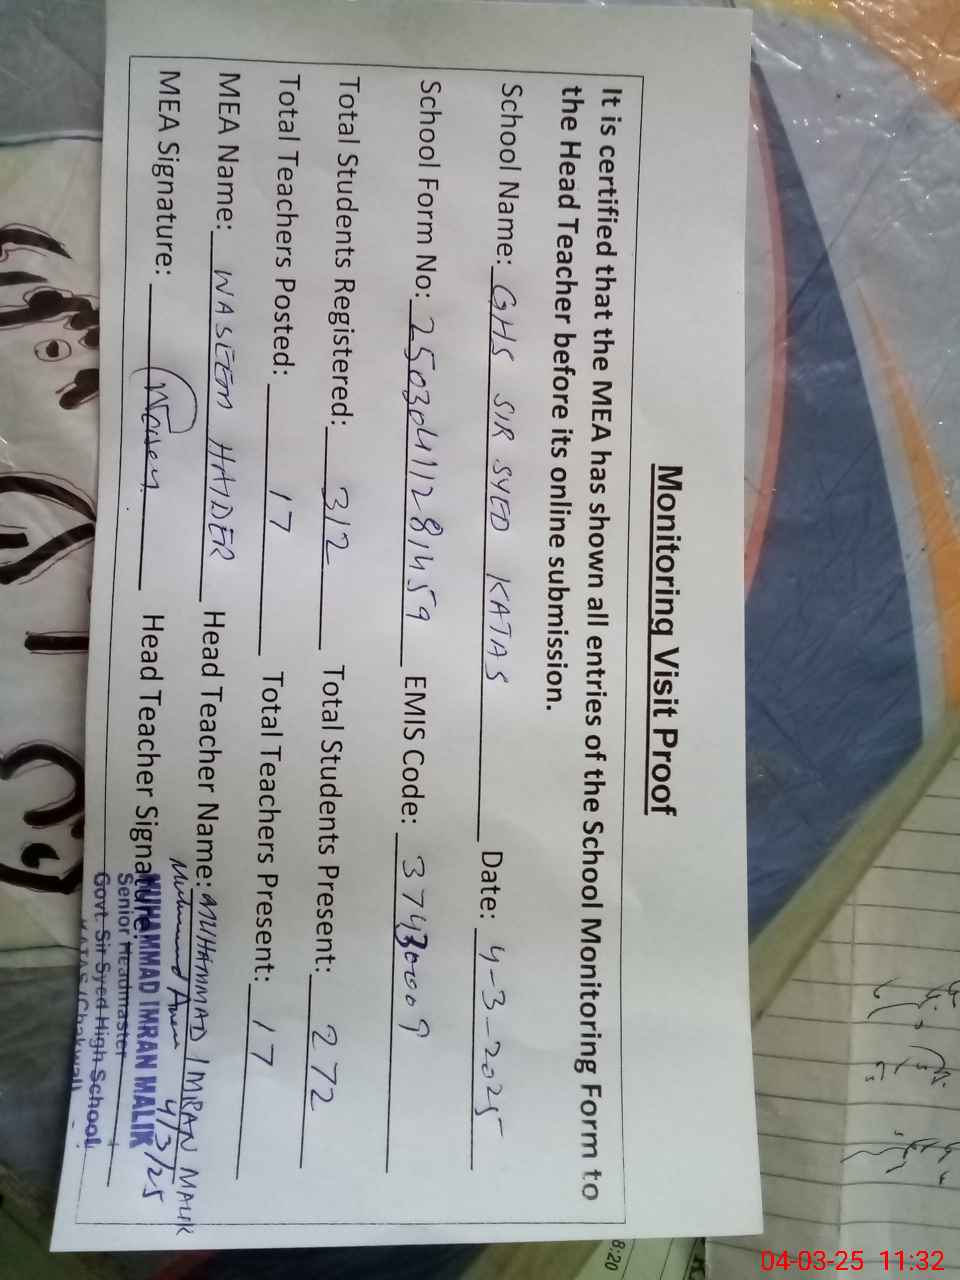 Monitoring Visit Proof
It is certified that the MEA has shown all entries of the School Monitoring Form to
the Head Teacher before its online submission.
School Name: GHS SIR SYED KATAS Date: 4-3-2025
School Form No: 25030411281459 EMIS Code: 37430009
Total Students Registered: 312 Total Students Present: 272
Total Teachers Posted: 17 Total Teachers Present: 17
MEA Name: WASEEM HAIDER Head Teacher Name: MUHAMMAD IMRAN MALIK
MEA Signature: Waseem Head Teacher Signature:
4/3/25
MUHAMMAD IMRAN MALIK
Senior Headmaster
Govt. Sir Syed High School
KATAS (Chakwal)
8:20
04-03-25 11:32